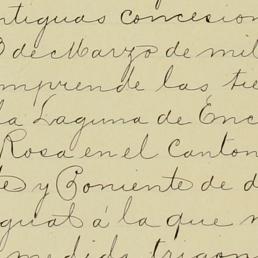 ntiguas concesion
3 de Marzo de mil
mprende las tie
la Laguna de Enc
Rosa en el canton
te y Poniente de d
gual á la que n
medida trigon